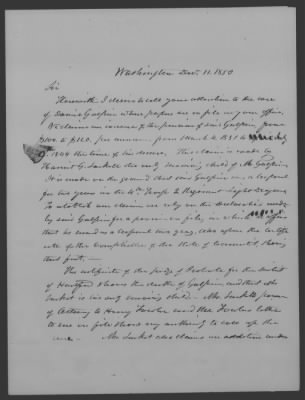 Washington Dec. 11. 1850
Sir
Herewith I desire to call your attention to the case
of Daniel Galpin whose papers are on file in your office.
We claim an increase of the pension of said Galpin from
to $120. per annum from March 4 1831 to
1844 the time of his decease. This claim is made by
Harriet G. Sackett the only surviving child of Mr Galpin.
It is made on the ground that said Galpin was a corporal
for two years in the 4th Troop 2 Regiment Light Dragoons
To establish our claim we rely on the declaration made
by said Galpin for a pension on file, in which he
that he served as a corporal two years, also upon the certifi
cate of the Comptroller of the State of Connecticut showing
that fact.
The certificate of the Judge of Probate for the district
of Hartford shows the death of Galpin, and that Mrs
Sacket is his only surviving child. Mrs. Sacketts power
of Attorney to Henry Fowler and the Fowlers letter
to me on file show my authority to call up the
case. Mrs Sacket also claims an addition under